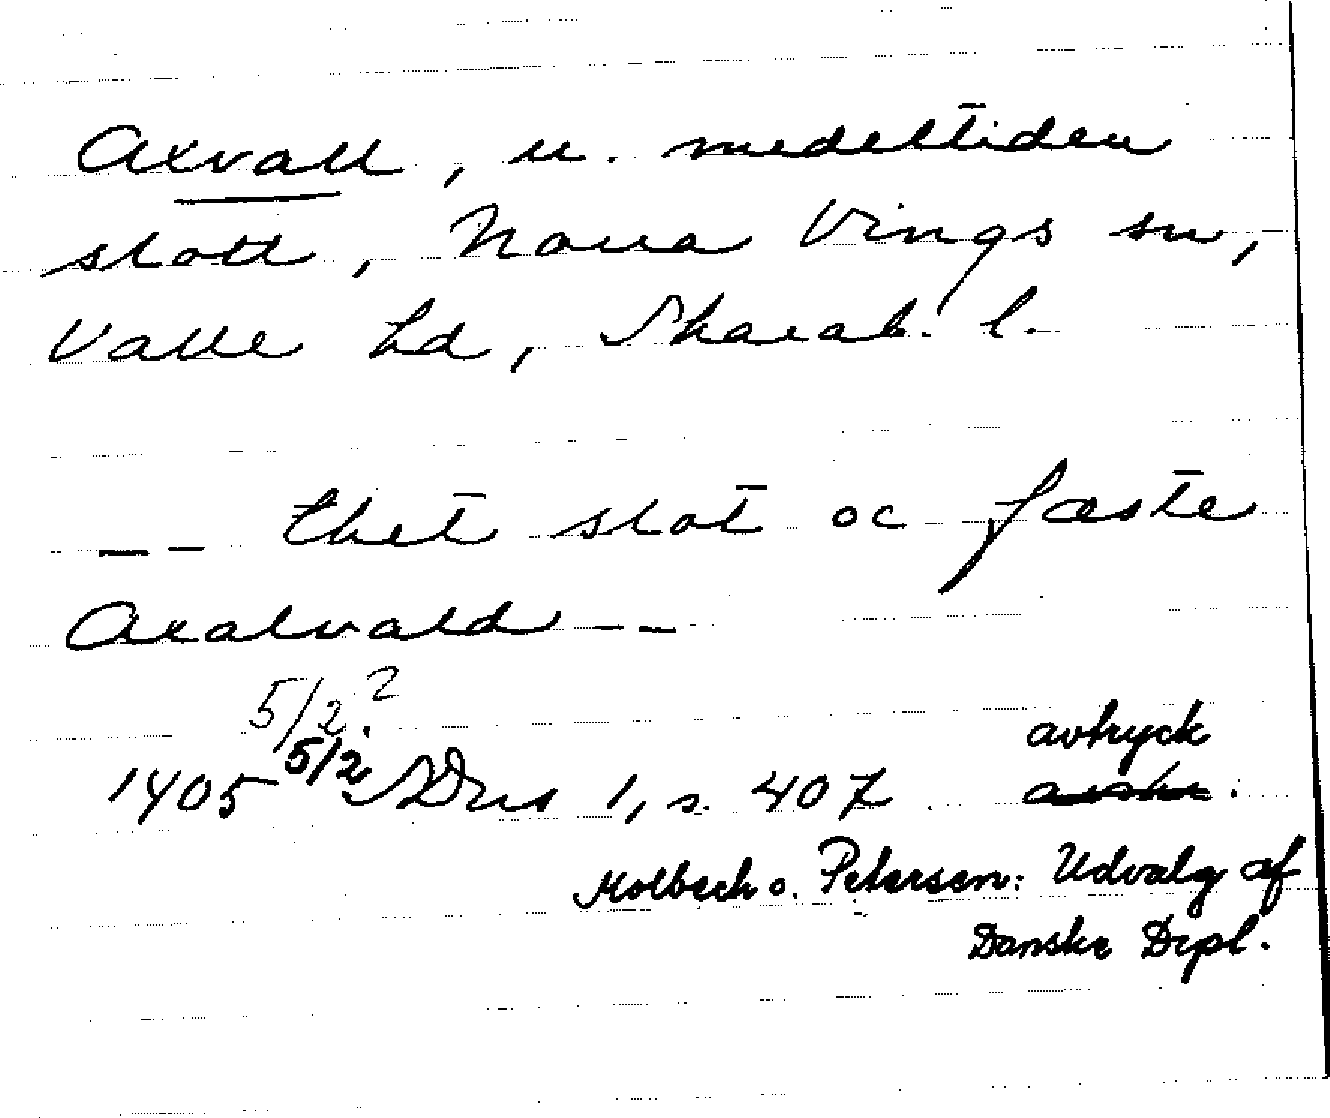 Axvall, u. medeltiden
slott, Norra Vings sn,
Valle hd, Skarab. l.
-- thet slot oc fæste
Axalwald --
5/2 ?
1405 5/2 SDns 1, s. 407 avtryck
Molbech o. Petersen: Udvalg af
Danske Dipl.